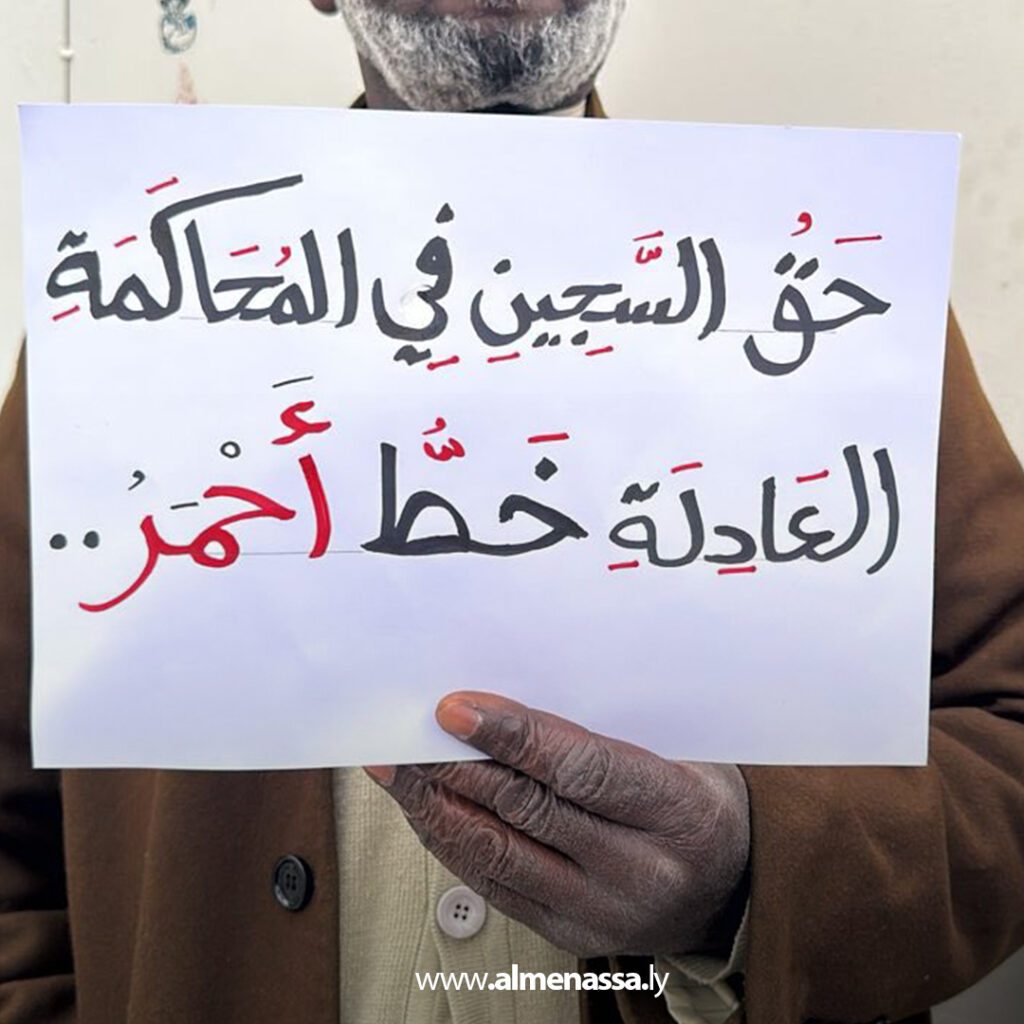 حَقُّ السَّجِينِ فِي المُحَاكَمَةِ
العَادِلَةِ خَطٌّ أَحْمَرُ..
www.almenassa.ly